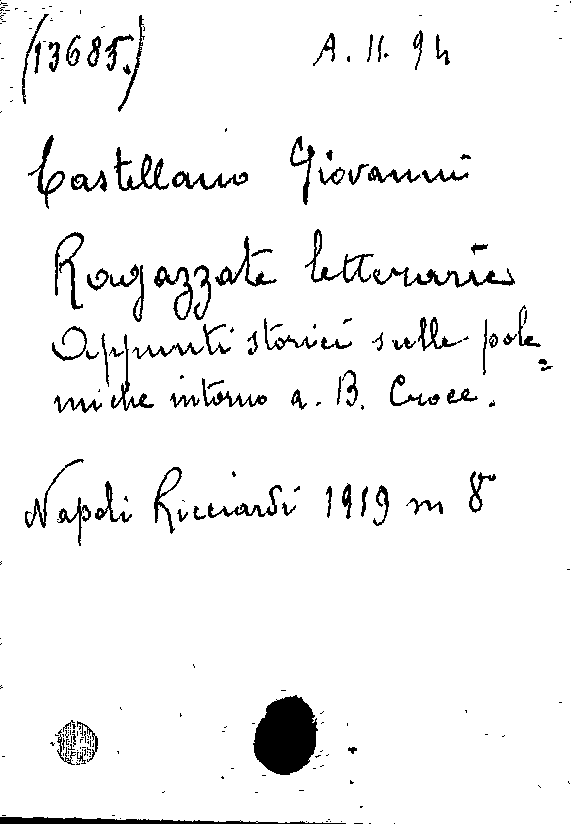 (13685.) A. 11. 94
Castellano Giovanni
Ragazzate letterarie
Appunti storici sulle pole=
miche intorno a. B. Croce.
Napoli Ricciardi 1919 in 8°